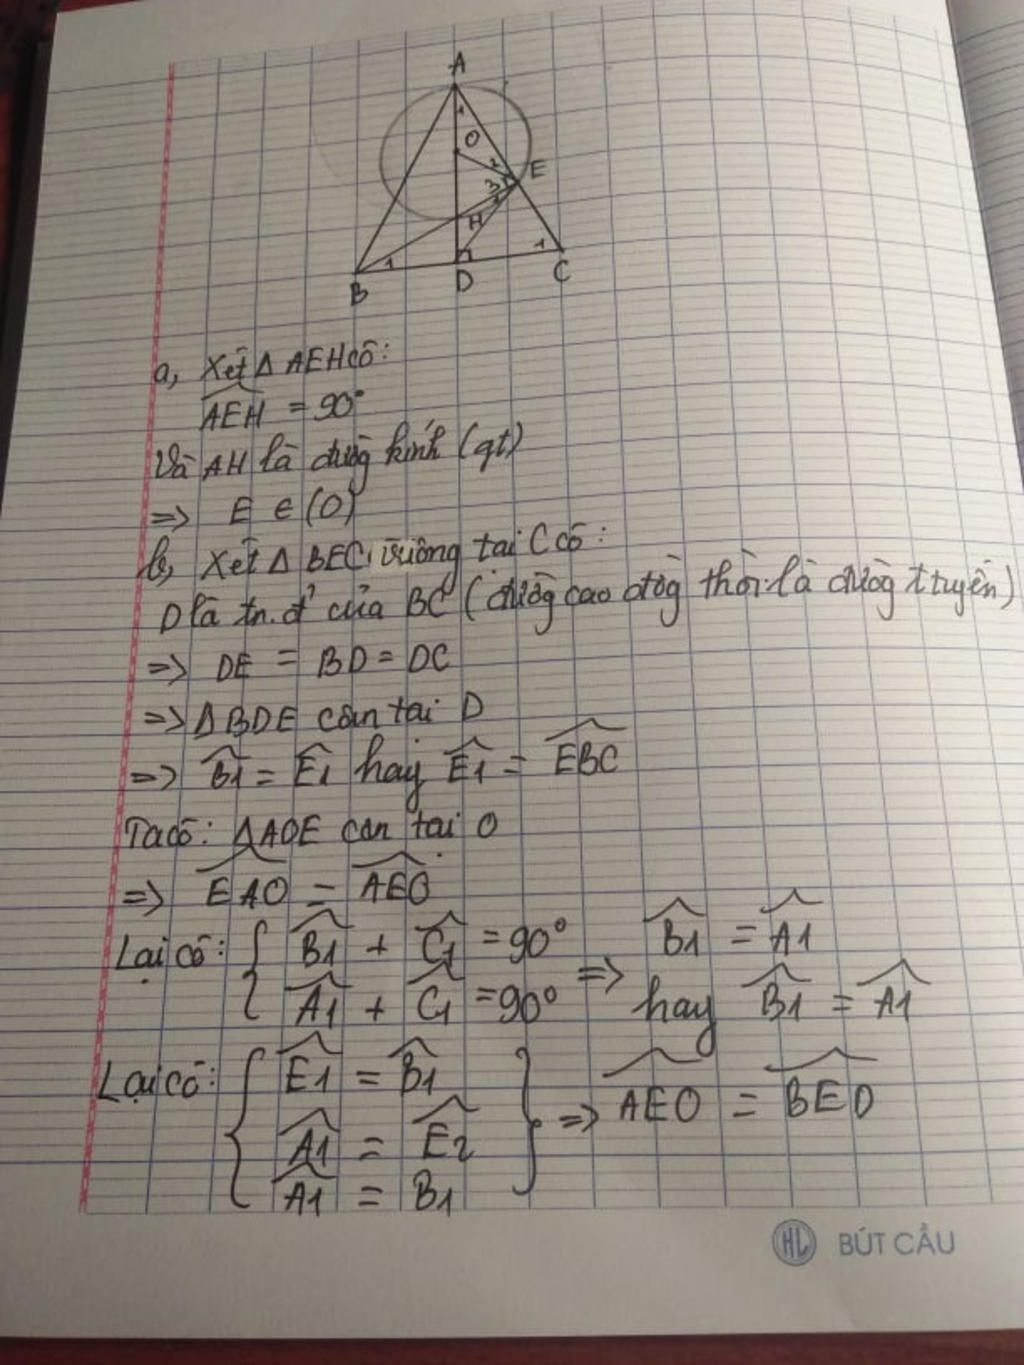 A
1
O
2
E
3
1
H
1
1
B
D
C
a, Xét Δ AEH có:
\widehat{AEH} = 90°
Và AH là đường kính (gt)
=> E ∈ (O)
b, Xét Δ BEC vuông tại C có:
D là tr.đ' của BC (đường cao đồng thời là đường t tuyến)
=> DE = BD = DC
=> Δ BDE cân tại D
=> \widehat{B1} = \widehat{E1} hay \widehat{E1} = \widehat{EBC}
Ta có: ΔAOE cân tại O
=> \widehat{EAO} = \widehat{AEO}
Lại có: { \widehat{B1} + \widehat{C1} = 90° => \widehat{B1} = \widehat{A1}
\widehat{A1} + \widehat{C1} = 90° hay \widehat{B1} = \widehat{A1}
Lại có: { \widehat{E1} = \widehat{B1}
\widehat{A1} = \widehat{E2} } => \widehat{AEO} = \widehat{BED}
\widehat{A1} = B1
HL BÚT CẦU